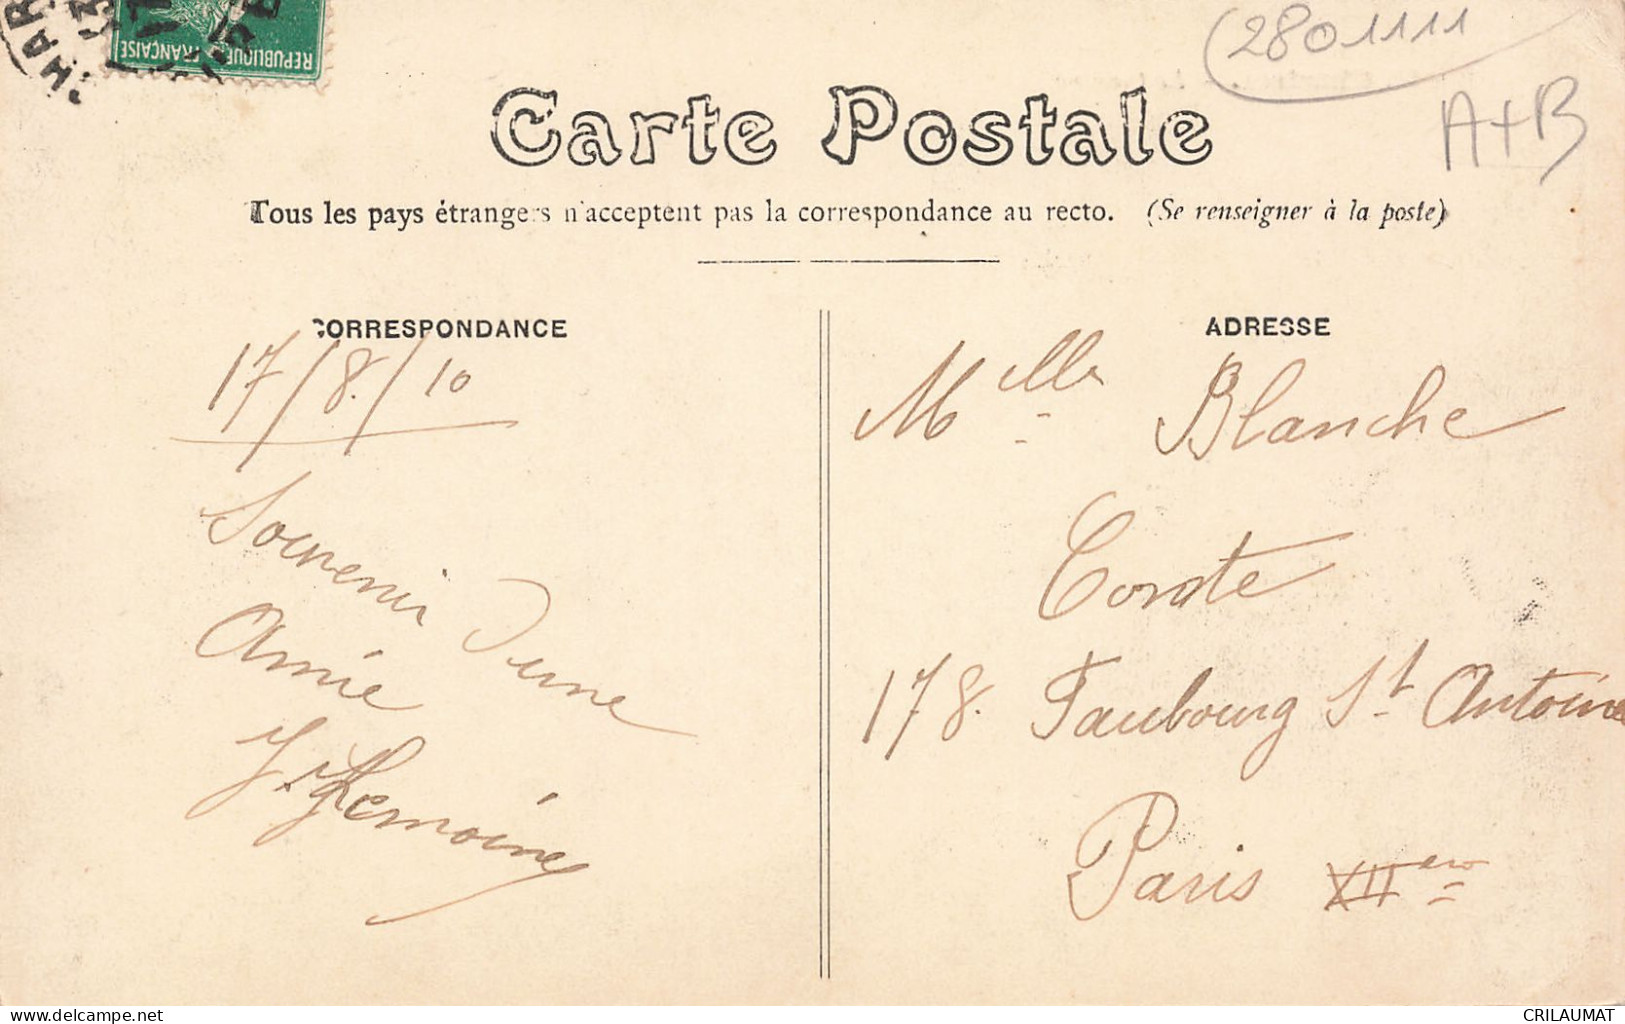 REPUBLIQUE FRANÇAISE
28011111
A+B
Carte Postale
Tous les pays étrangers n'acceptent pas la correspondance au recto. (Se renseigner à la poste)
CORRESPONDANCE
17/8./10
Souvenir d'une
Amie
J. Lemoine
ADRESSE
Melle Blanche
Conte
178. Faubourg St. Antoine
Paris XIIeme
www.delcampe.net
CRILAUMAT